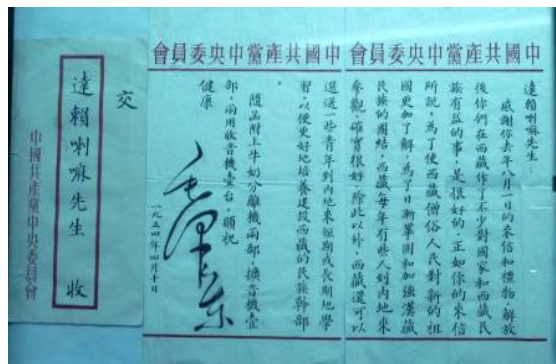 中國共產黨中央委員會
達賴喇嘛先生：
感謝你去年八月一日的來信和禮物。解放
後你們在西藏作了不少對國家和西藏民
族有益的事，是很好的，正如你的來信
所說，為了使西藏僧俗人民對新的祖
國更加了解，為了日漸鞏固和加強漢藏
民族的團結，西藏每年有些人到內地來
參觀，確實很好。除此以外，西藏還可以
中國共產黨中央委員會
選送一些青年到內地來短期或長期地學
習，以便更好地培養建設西藏的民族幹部
隨函附上牛奶分離機兩部，擴音機壹
部，兩用收音機壹台。順祝
健康
毛澤东
一九五四年四月十日
交
達賴喇嘛先生 收
中國共產黨中央委員會